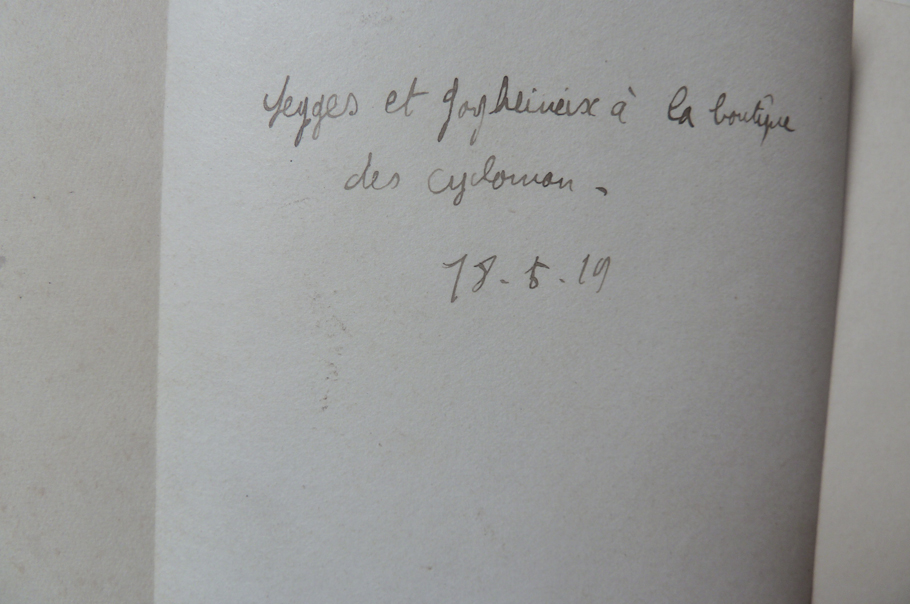 et à la boutique
des cycloman.
18.5.19